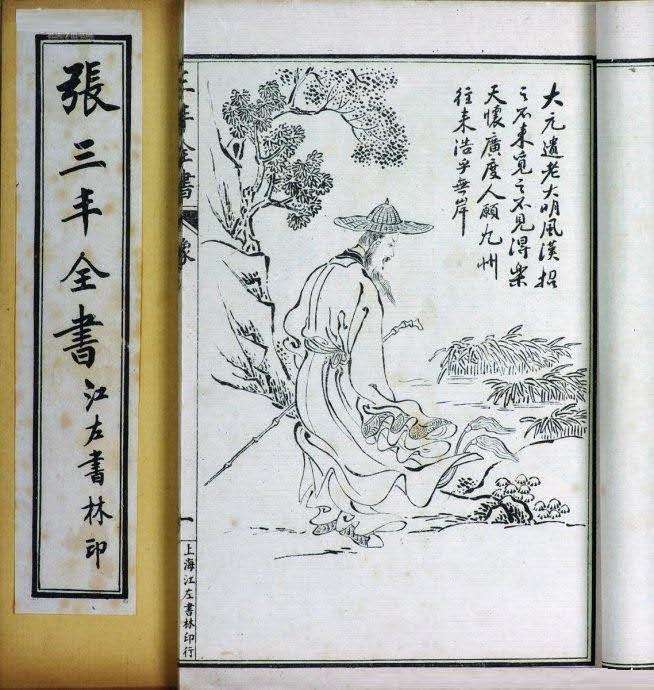 張三丰全書
江左書林印
大元遺老大明風漢招
之不来覓之不見得樂
天懷廣度人願九州
往来浩乎無岸
三丰全書
像
一
上海江左書林印行